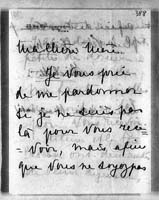 308
Ma chère
Je vous prie
de me pardonner
si je ne suis pas
là pour vous rece
= voir, mais afin
que vous ne soyez pas